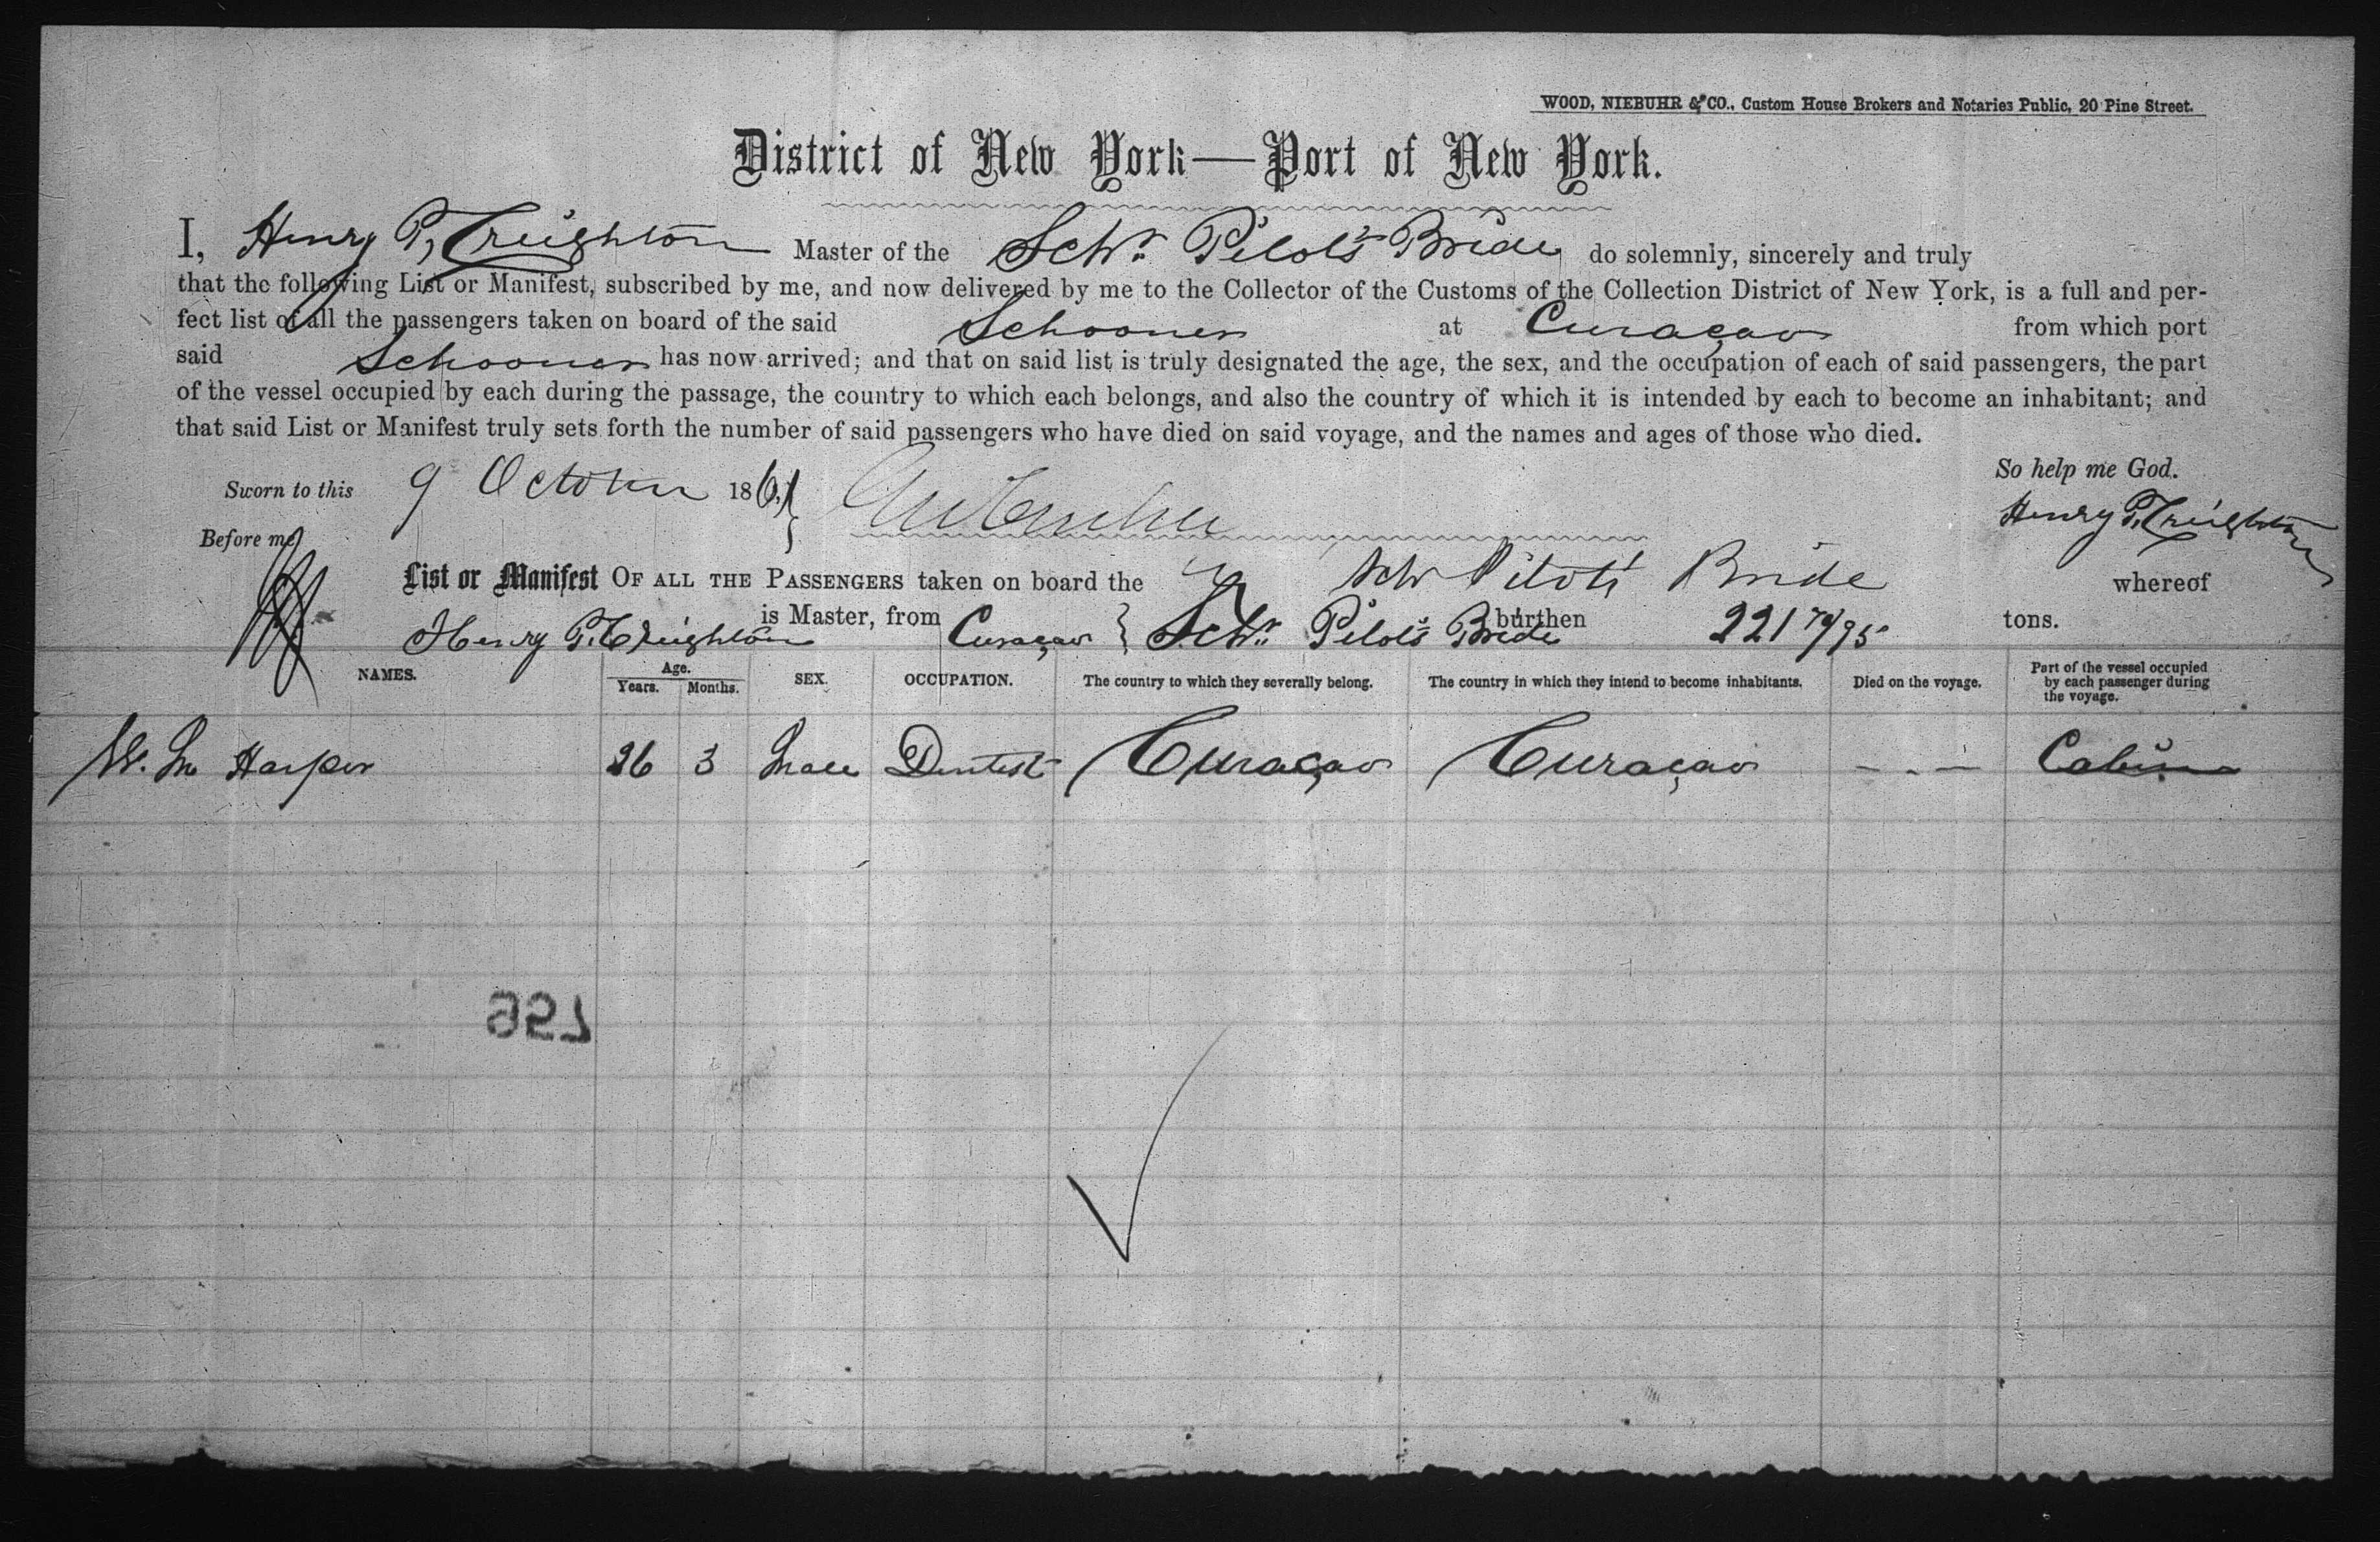 WOOD, NIEBUHR & CO., Custom House Brokers and Notaries Public, 20 Pine Street.
District of New York—Port of New York.
I, Henry P, Creighton Master of the Schr. Pilot's Bride do solemnly, sincerely and truly
that the following List or Manifest, subscribed by me, and now delivered by me to the Collector of the Customs of the Collection District of New York, is a full and per-
fect list of all the passengers taken on board of the said Schooner at Curaçao from which port
said Schooner has now arrived; and that on said list is truly designated the age, the sex, and the occupation of each of said passengers, the part
of the vessel occupied by each during the passage, the country to which each belongs, and also the country of which it is intended by each to become an inhabitant; and
that said List or Manifest truly sets forth the number of said passengers who have died on said voyage, and the names and ages of those who died.
So help me God.
Sworn to this 9 October 1861 }
Henry P. Creighton
Before me
List or Manifest OF ALL THE PASSENGERS taken on board the Schr Pilots Bride whereof
Henry P. Creighton is Master, from Curaçao } Schr. Pilot's Bride burthen 221 74/95 tons.
NAMES. Age. Years. Months. SEX. OCCUPATION. The country to which they severally belong. The country in which they intend to become inhabitants. Died on the voyage. Part of the vessel occupied by each passenger during the voyage.
W. M Harper 26 3 Male Dentist Curaçao Curaçao - - - Cabin